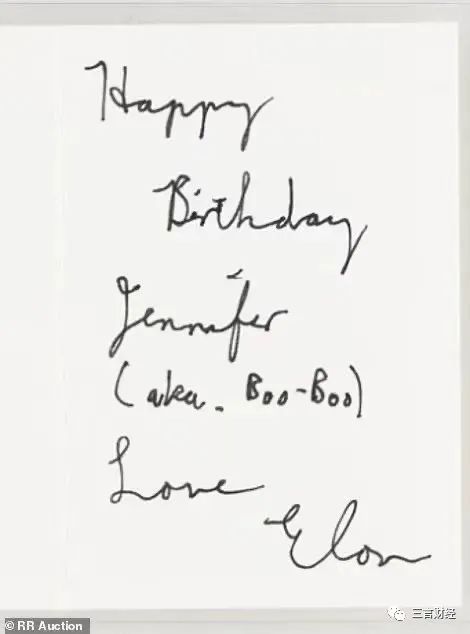 Happy
Birthday
Jennifer
(aka. Boo-Boo)
Love
Elon
© RR Auction
三言财经